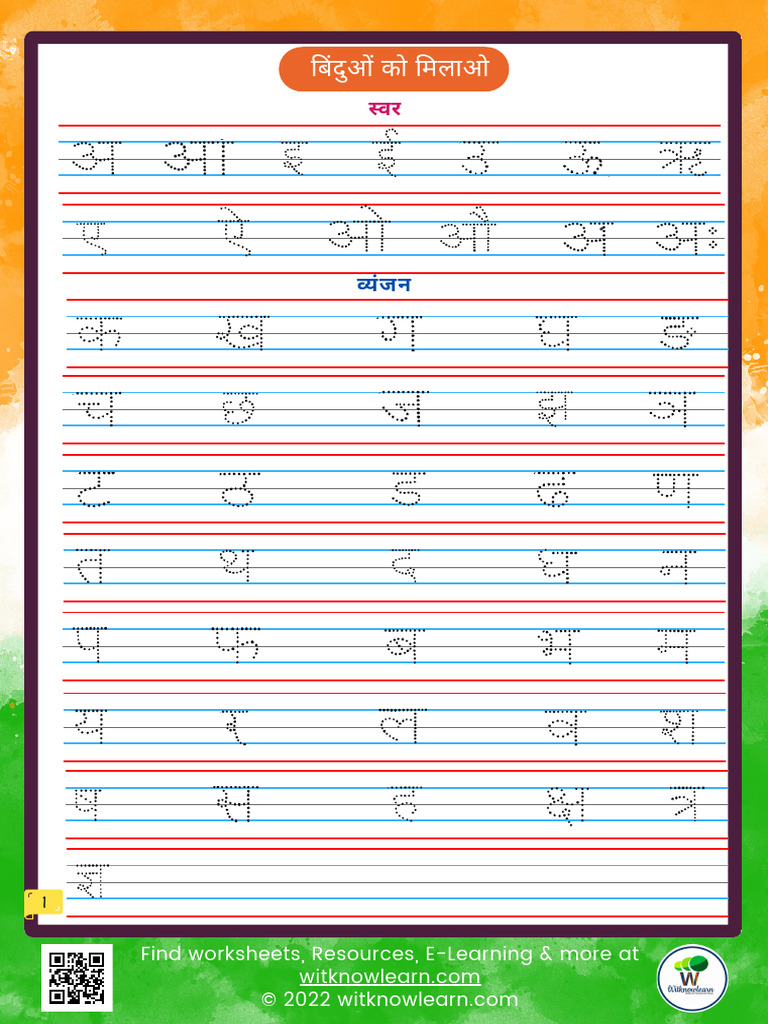 बिंदुओं को मिलाओ
स्वर
अ आ इ ई उ ऊ ऋ
ए ऐ ओ औ अ अः
व्यंजन
क ख ग घ ङ
च छ ज झ ञ
ट ठ ड ढ ण
त थ द ध न
प फ ब भ म
य र ल व श
ष स ह क्ष त्र
ज्ञ
1
Find worksheets, Resources, E-Learning & more at
witknowlearn.com
© 2022 witknowlearn.com
Witknowlearn